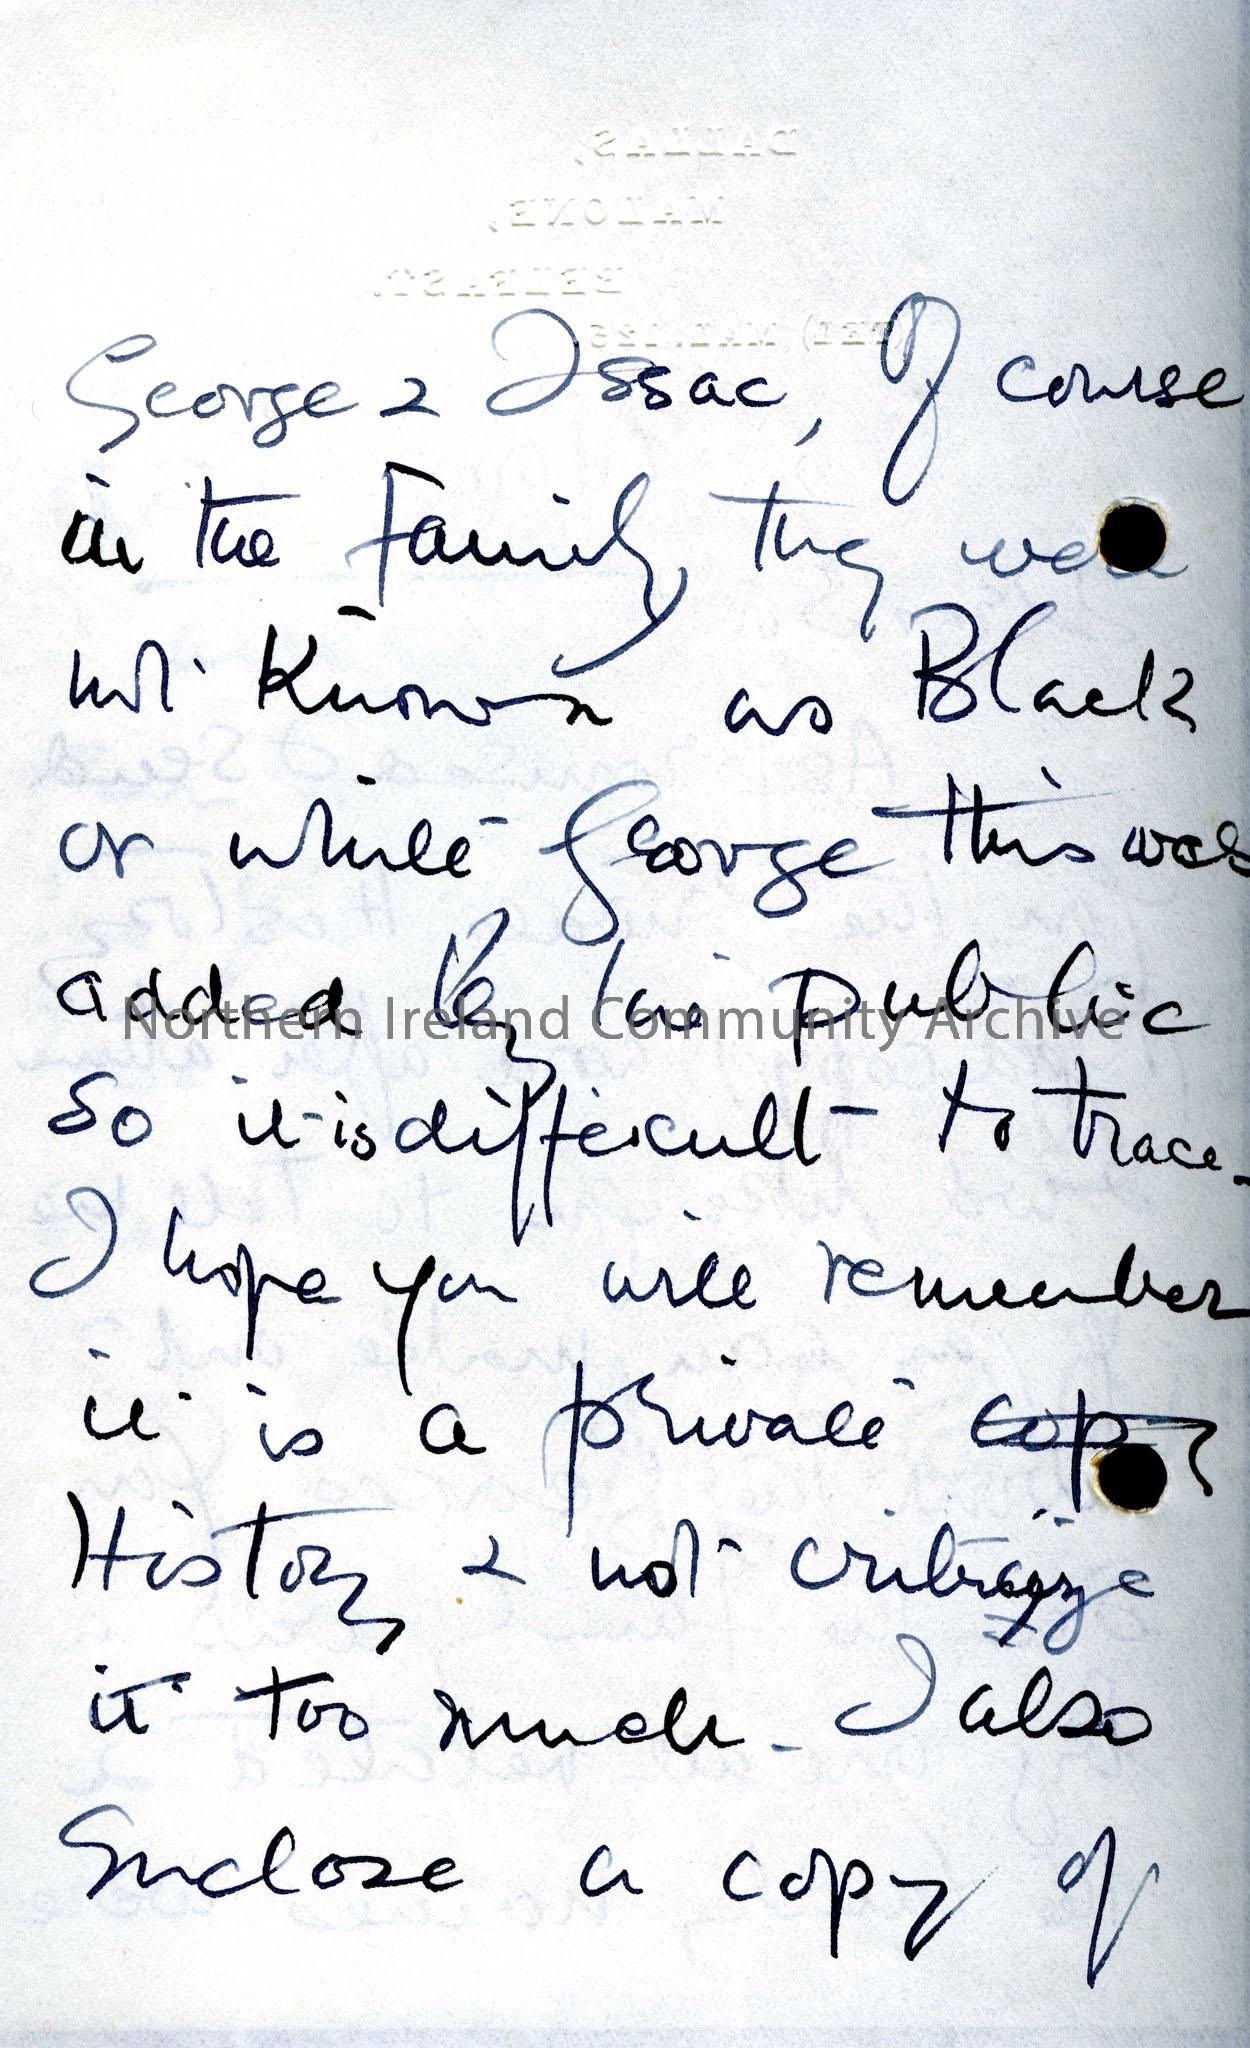 DALLAS,
MALONE,
BELFAST.
(TEL) MAL. 126.
George & Issac, Of course
in the Family they were
not Known as Black
or white George this was
added by the public
So it is difficult to trace.
I hope you will remember
it is a private copy
History & not critizize
it too much. I also
Enclose a copy of
Northern Ireland Community Archive